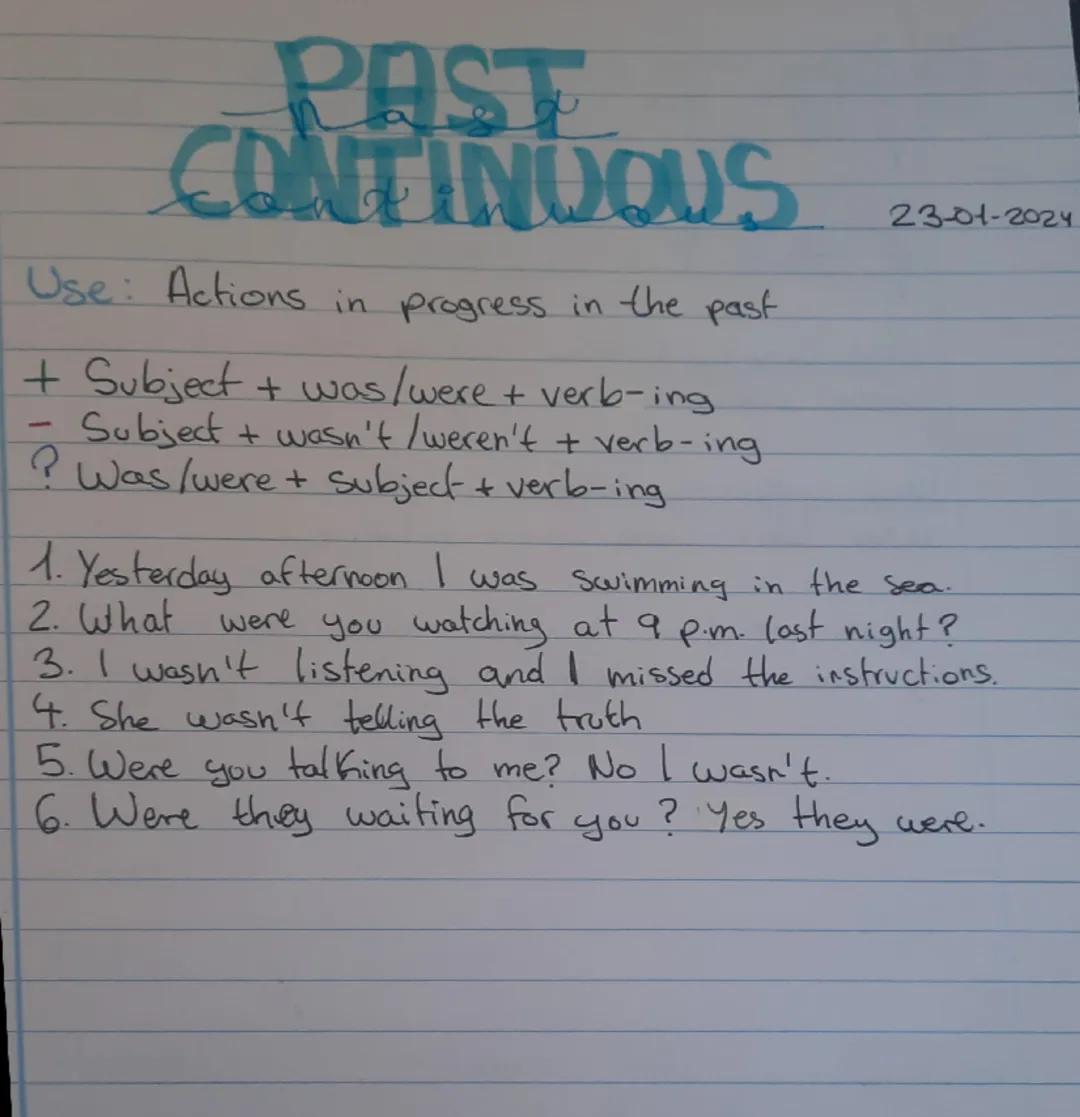 PAST
past
CONTINUOUS
continuous
23-01-2024
Use: Actions in progress in the past
+ Subject + was/were + verb-ing
- Subject + wasn't/weren't + verb-ing
? Was/were + subject + verb-ing
1. Yesterday afternoon I was swimming in the sea.
2. What were you watching at 9 p.m. last night?
3. I wasn't listening and I missed the instructions.
4. She wasn't telling the truth
5. Were you talking to me? No I wasn't.
6. Were they waiting for you? Yes they were.